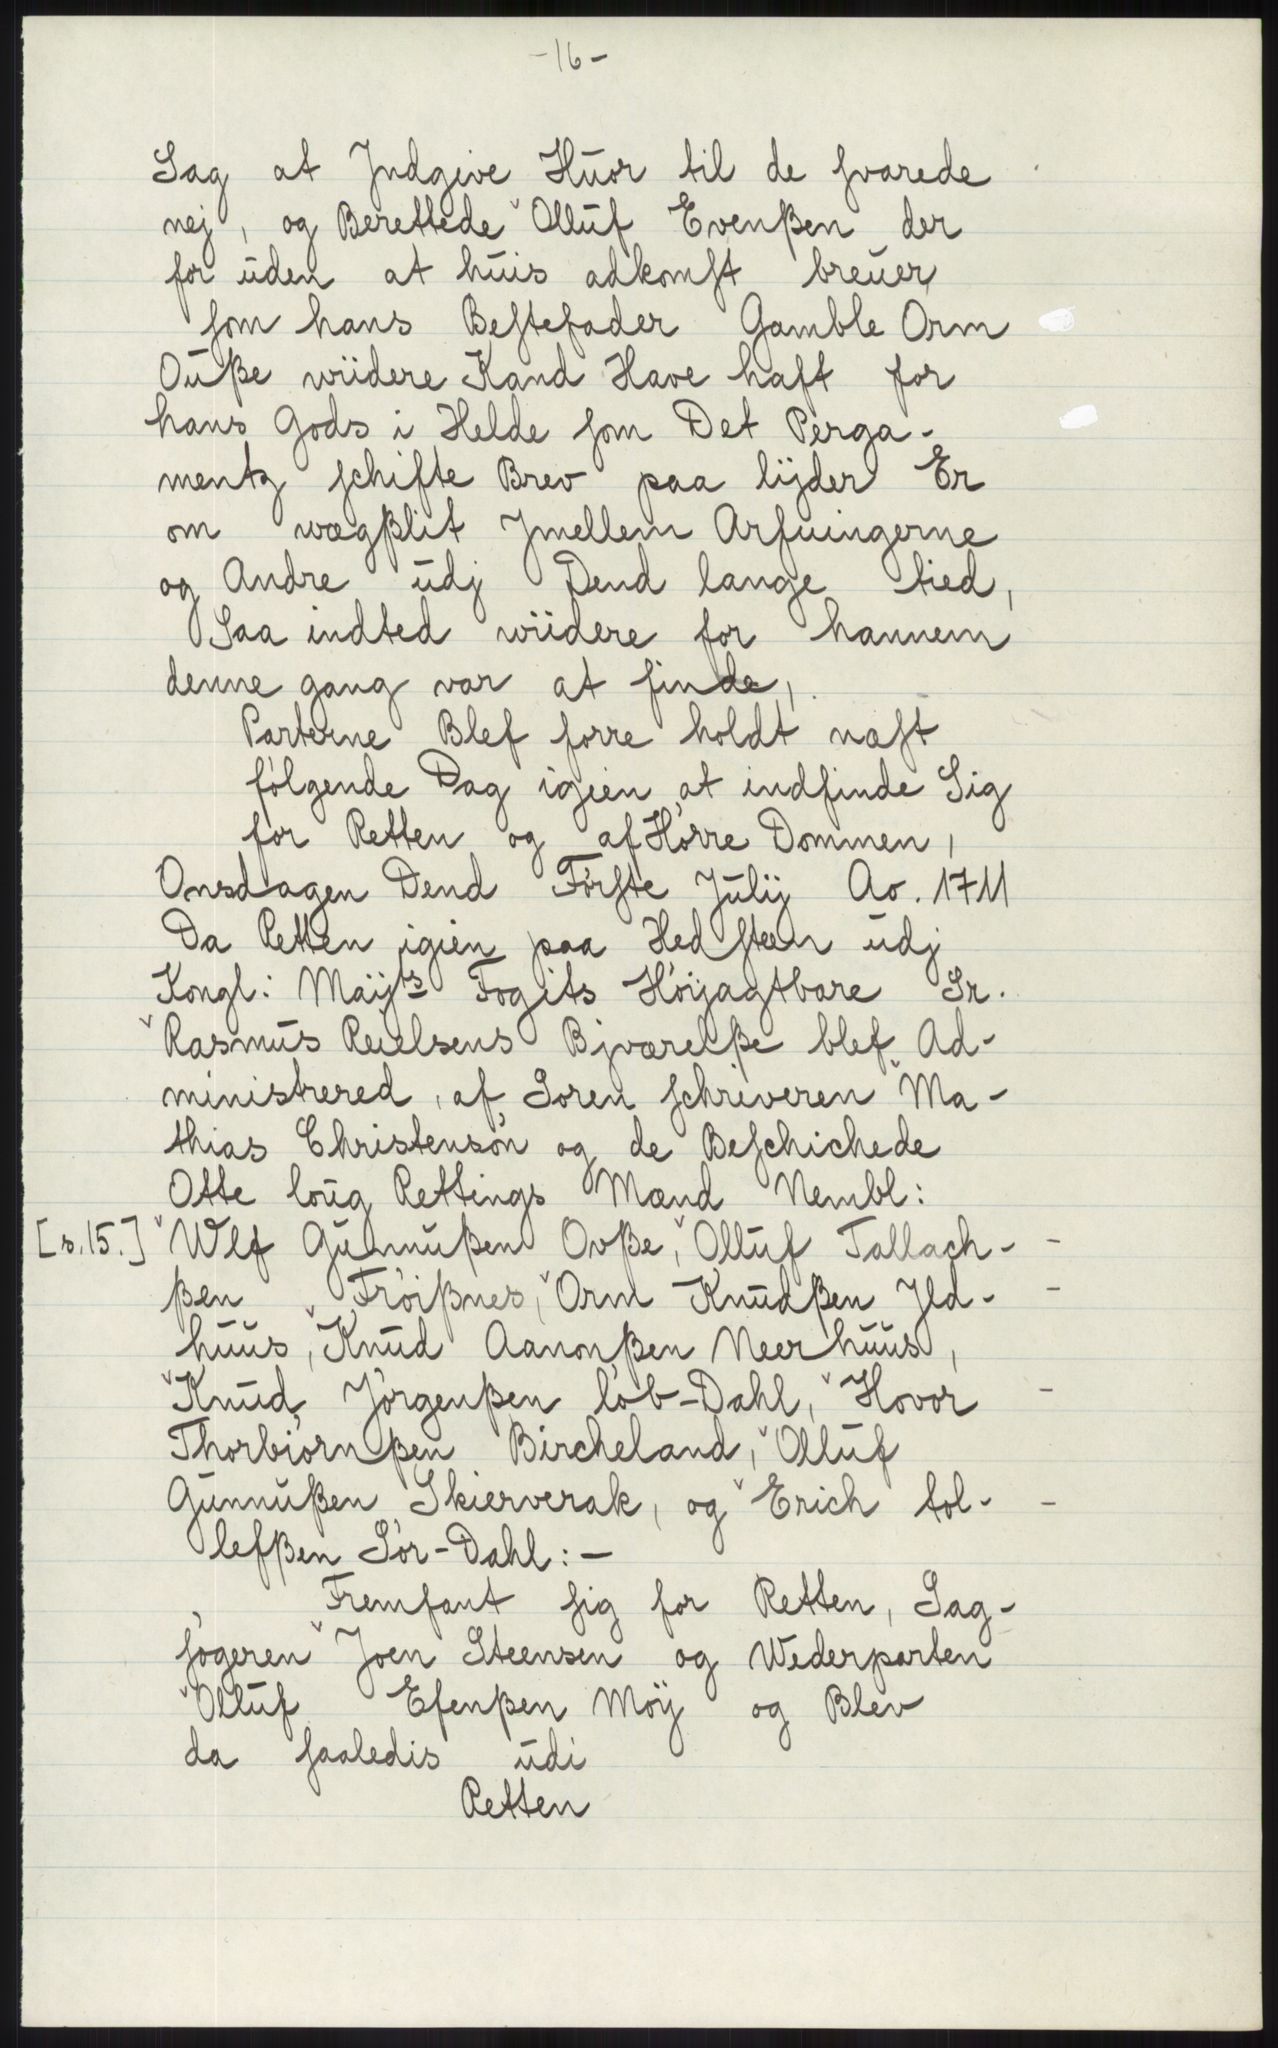 -16-
Sag at Jndgive Huor til de svarede
nej, og Berettede Olluf Evenßen der
for uden at huis adkomst breuer
som hans Bestefader Gamble Orm
Oußе wiidere Kand Have haft for
hans Gods i Helde som Det Perga-
mentz schifte Brev paa lyder Er
om wægßlit Jmellem Arfuingerne
og Andre udj Dend lange tied,
Saa indted wiidere for hannem
denne gang var at finde,
Parterne Blef forre holdt næst
følgende Dag igien at indfinde Sig
for Retten og af Hørre Dommen,
Onsdagen Dend Første Julij Ao. 1711
Da Retten igien paa Hedsteen udj
Kongl: Maijts Fogits Høijagtbare Sr.
Rasmus Reielsens Bjværelße blef Ad-
ministrered, af Soren schriveren Ma-
thias Christensøn og de Beschichede
Otte loug Rettings Mænd Nembl:
[s.15.] Wlf Gunnußen Ovße, Olluf Tallach- -
ßen Frøißnes, Orm Knudßen Jld- -
huus, Knud Aanonßen Neerhuus,
Knud Jørgenßen løb-Dahl, Hovor -
Thorbiørnßen Bircheland, Olluf
Gunnußen Skierverak, og Erich tol- -
lefßen Sør-Dahl: -
Fremfant sig for Retten, Sag-
søgeren Joen Steensen og Wederparten
Olluf Efenßen Møij og Blev
da saaledis udi
Retten